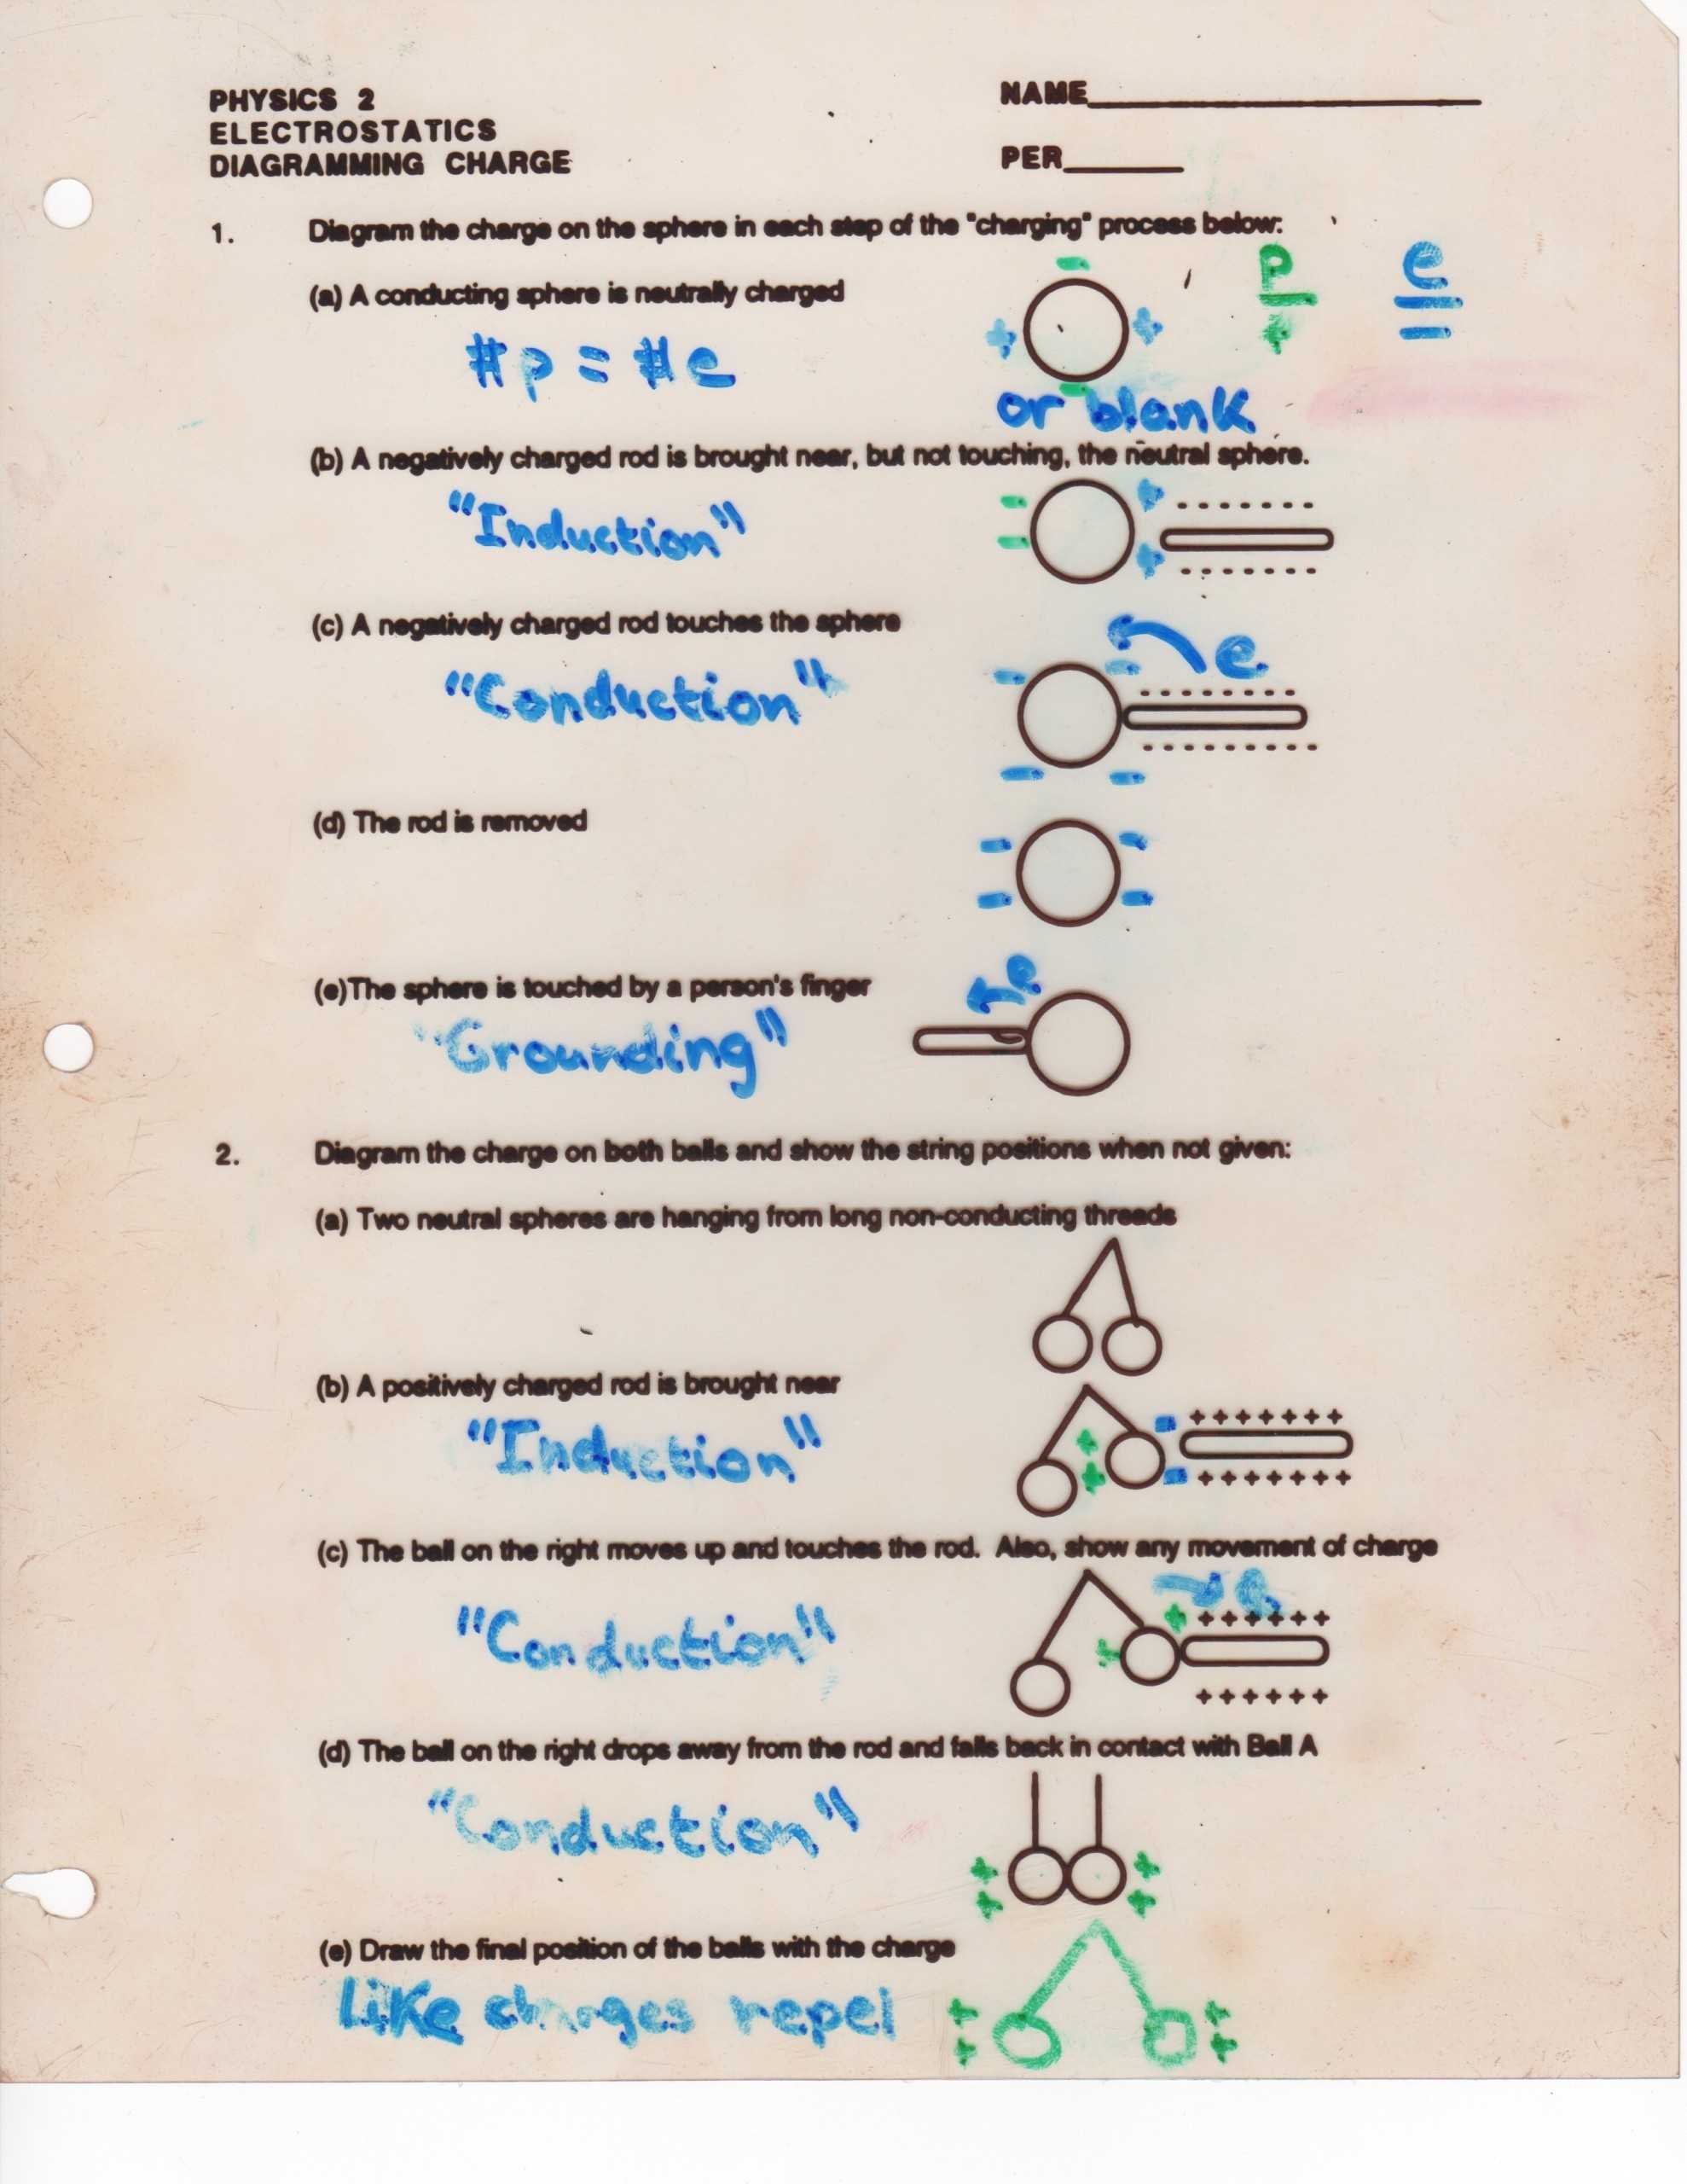 PHYSICS 2
NAME
ELECTROSTATICS
DIAGRAMMING CHARGE
PER
1. Diagram the charge on the sphere in each step of the "charging" process below:
(a) A conducting sphere is neutrally charged
p e
+ −
−
+ +
−
#p = #e
or blank
(b) A negatively charged rod is brought near, but not touching, the neutral sphere.
"Induction"
− + - - - - - - -
− + - - - - - - -
(c) A negatively charged rod touches the sphere
e
"Conduction"
− − - - - - - - - -
− − - - - - - - - - -
(d) The rod is removed
− −
− −
(e)The sphere is touched by a person's finger
e
"Grounding"
2. Diagram the charge on both balls and show the string positions when not given:
(a) Two neutral spheres are hanging from long non-conducting threads
(b) A positively charged rod is brought near
"Induction"
+ − + + + + + + +
+ − + + + + + + +
(c) The ball on the right moves up and touches the rod. Also, show any movement of charge
"Conduction"
+ + + + + + +
+
+ + + + + +
(d) The ball on the right drops away from the rod and falls back in contact with Ball A
"Conduction"
+ +
+ +
(e) Draw the final position of the balls with the charge
Like charges repel
+ +
+ +